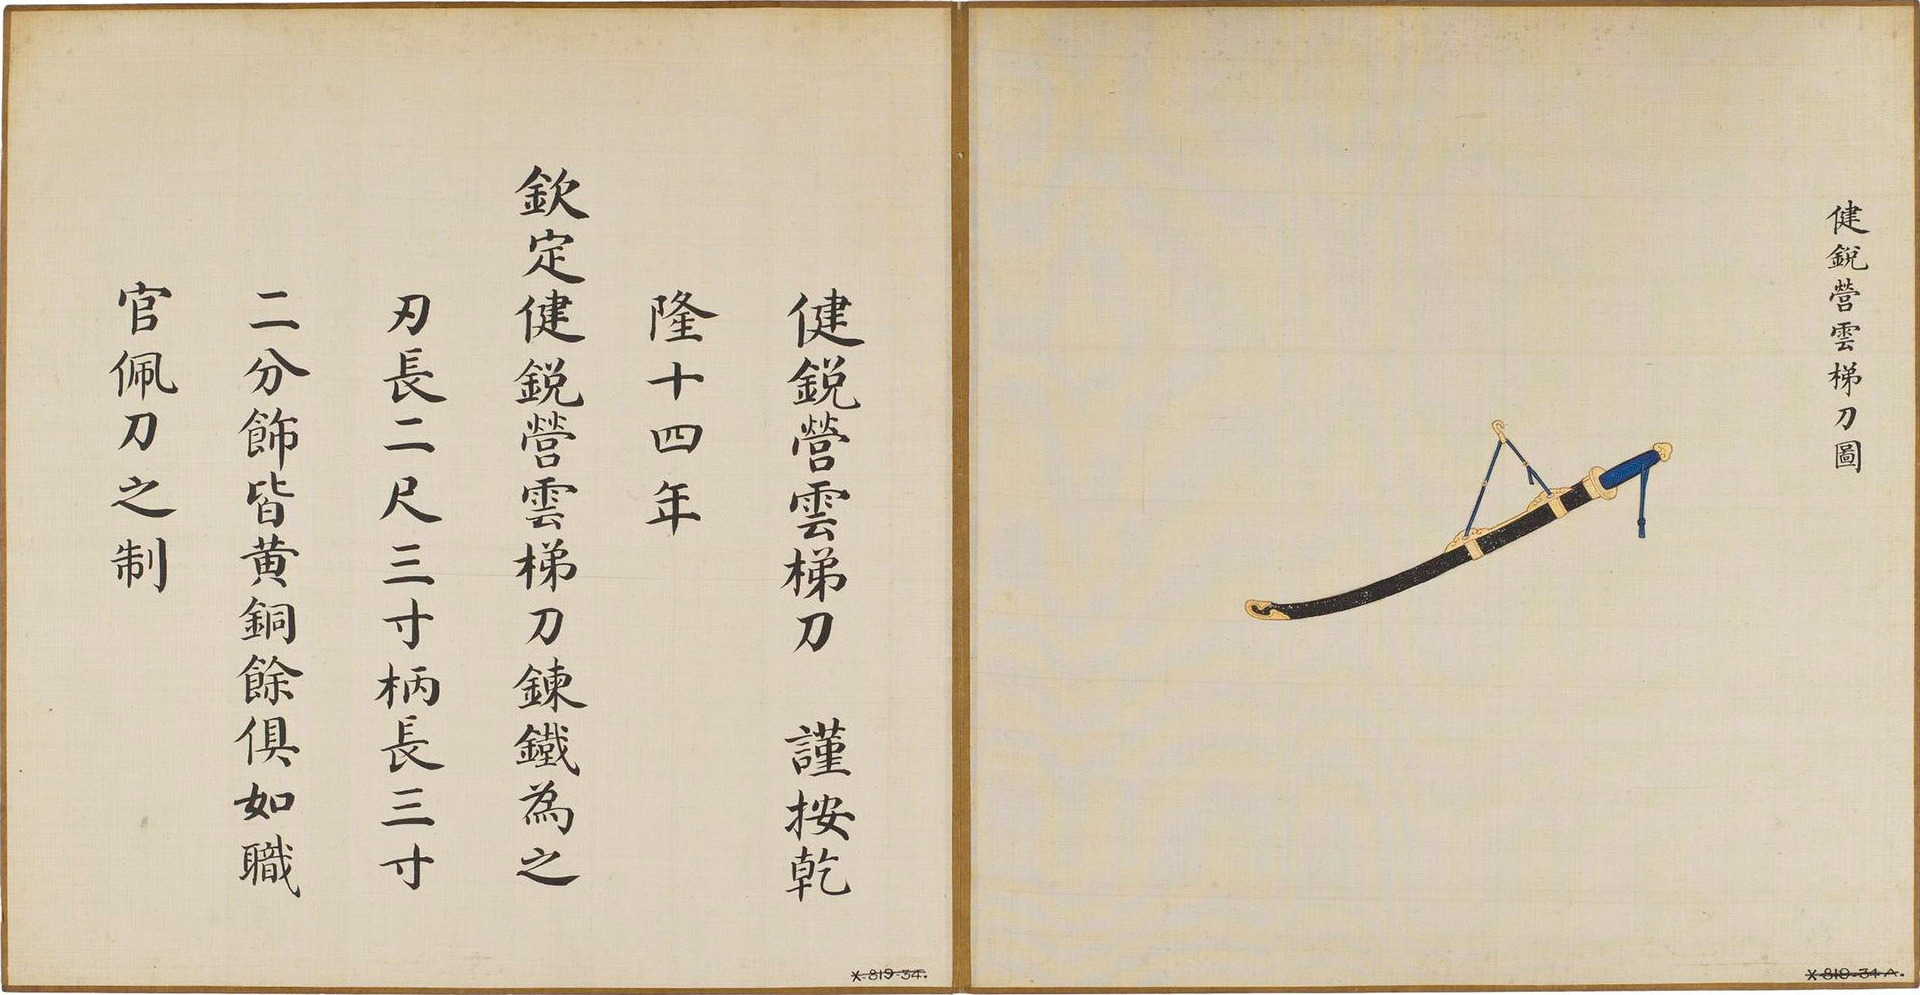 健銳營雲梯刀圖
健銳營雲梯刀　謹按乾
隆十四年
欽定健銳營雲梯刀鍊鐵為之
刃長二尺三寸柄長三寸
二分飾皆黃銅餘俱如職
官佩刀之制
X-819-34.
X-819-34 A.